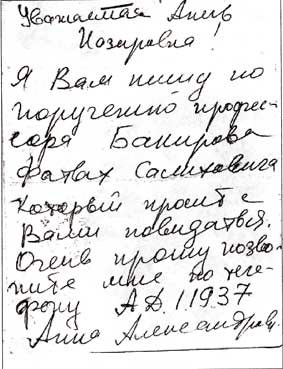 Уважаемая Анир
Назаровна!
Я Вам пишу по
поручению профес-
сора Бакирова
Фатвах Салиховича
который просит с
Вами повидаться.
Очень прошу позво-
ните мне по теле-
фону АД.1.1937
Анна Александровн.